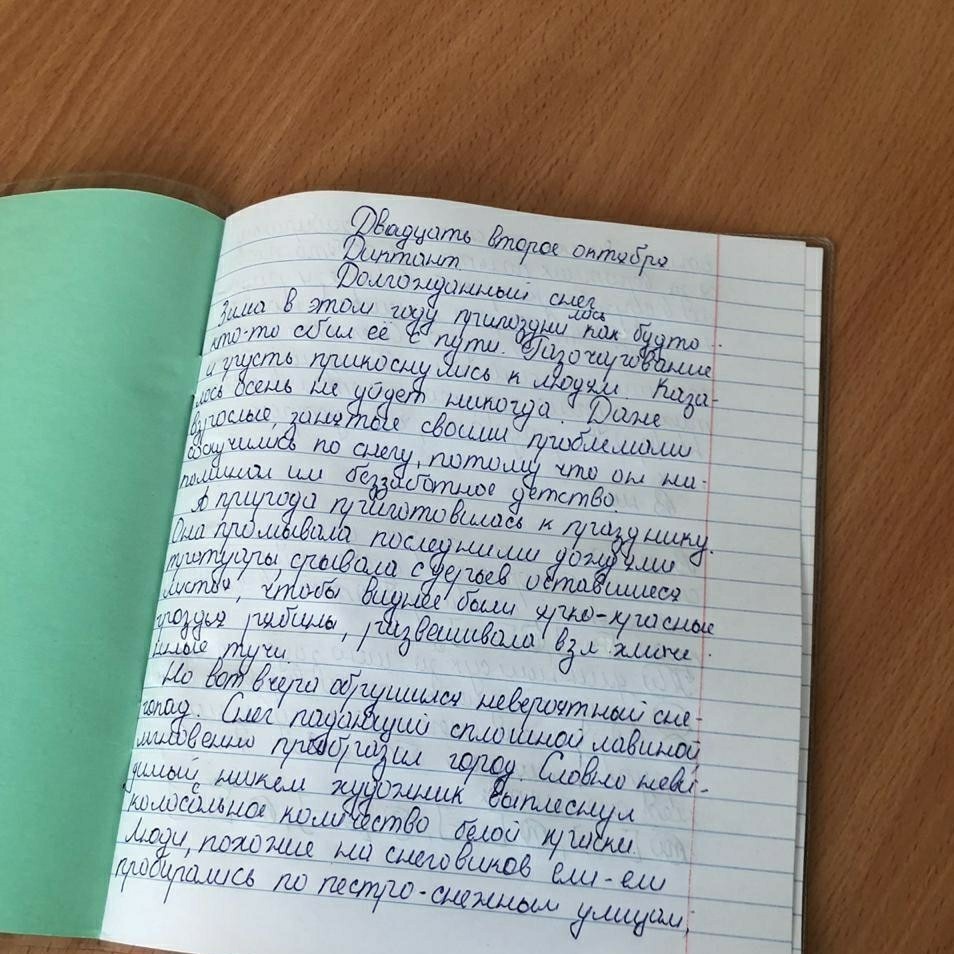 Двадцать второе октября
Диктант.
Долгожданный снег
Зима в этом году припоздни лась как будто
кто-то сбил её с пути. Разочарование
и грусть прикоснулись к людям. Каза-
лось осень не уйдет никогда. Даже
взрослые, занятые своими проблемами
соскучились по снегу, потому что он на-
помина им беззаботное детство.
А природа приготовилась к празднику.
Она промывала последними дождями
тротуары срывала с деревьев оставшиеся
листья, чтобы виднее были ярко-красные
гроздья рябины, развешивала взлахмаче
нные тучи
Но вот вчера обрушился невероятный сне-
гопад. Снег падающий сплошной лавиной
мгновенно преобразил город. Словно неви-
димый никем художник выплеснул
колосальное количество белой краски.
Люди, похожие на снеговиков ели-ели
пробирались по пестро-снежным улицам;